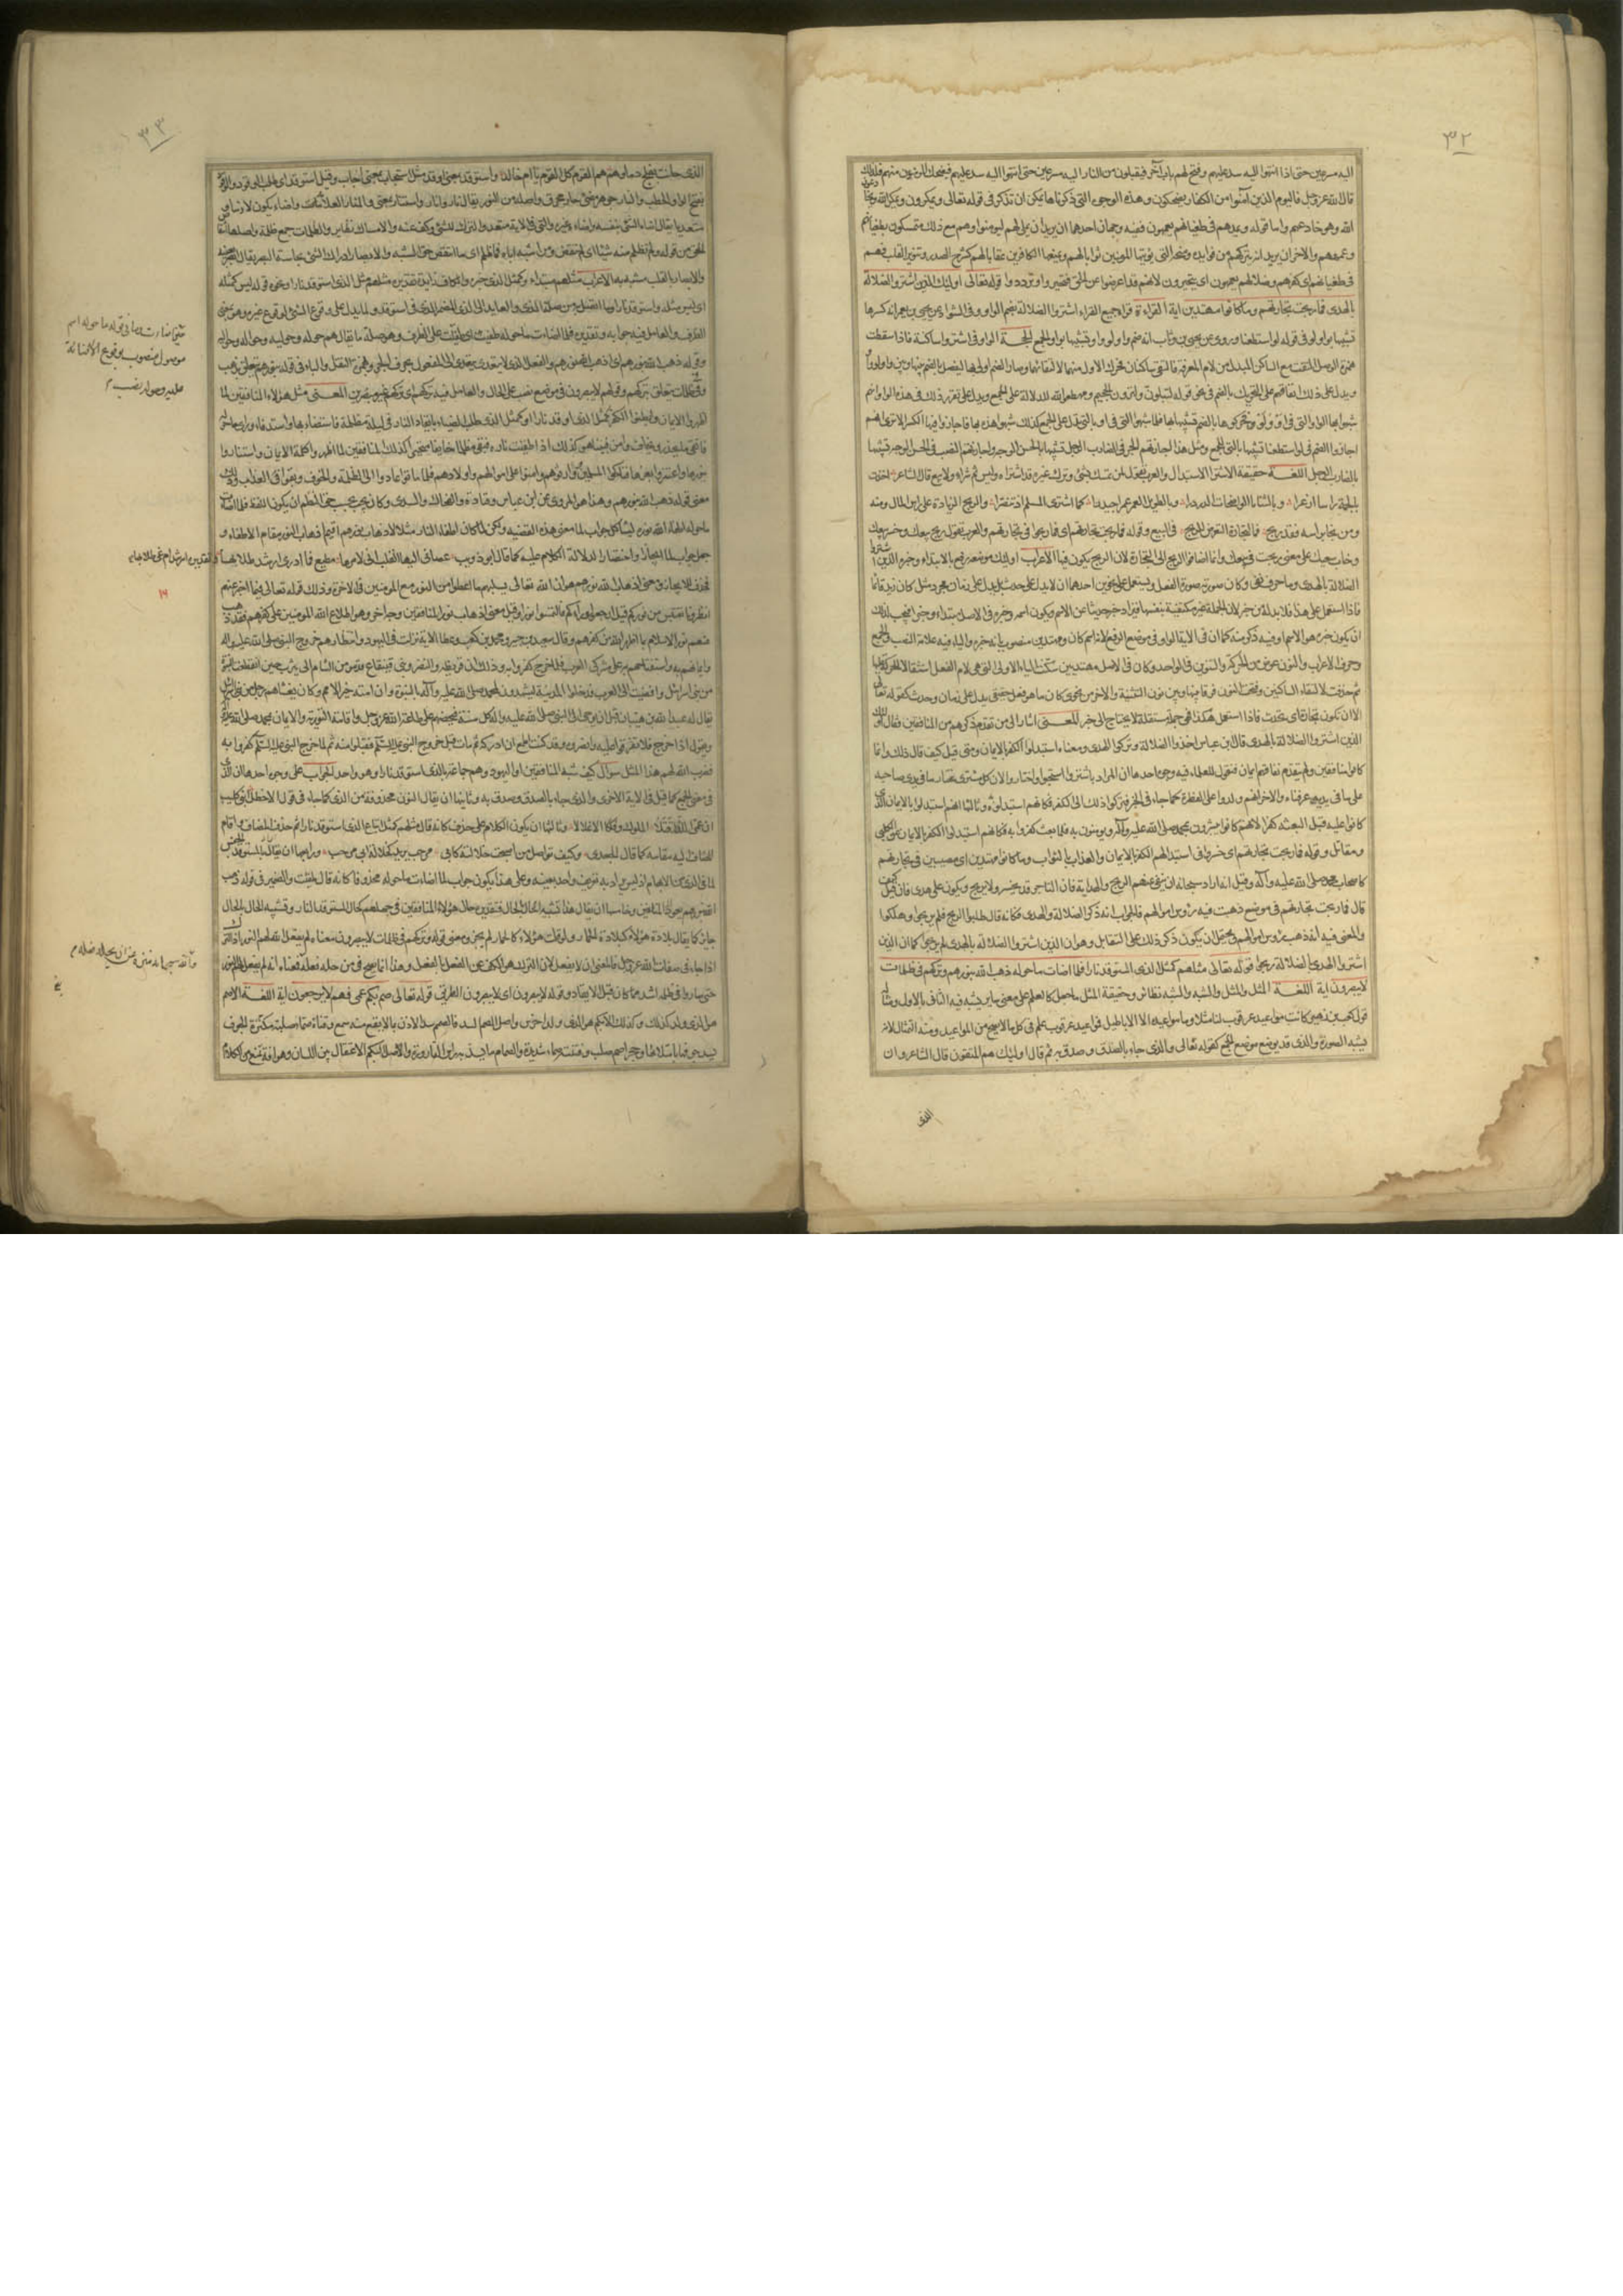 ٣٢
اليه مسرعين حتى اذا انتهوا اليه سد عليهم وفتح لهم باب آخر فيقبلون من النار اليه مسرعين حتى انتهوا اليه سد عليهم فيضحك المؤمنون منهم فلذلك
قال الله عز وجل فاليوم الذين آمنوا من الكفار يضحكون وهذه الوجوه التي ذكرناها يمكن ان تذكر في قوله تعالى ويمكرون ويمكر الله
الله وهو خادعهم واما قوله ويمدهم في طغيانهم يعمهون ففيه وجهان احدهما ان يريد ان يملي لهم ليؤمنوا وهم مع ذلك متمسكون بطغيانهم
وعمههم والاخر ان يريد انه يتركهم من فوايده ومنحه التي يؤتيها المؤمنين ثوابا لهم ويمنعها الكافرين عقابا لهم كشرح الصدر وتنوير القلب فهم
في طغيانهم اي كفرهم وضلالهم يعمهون اي يتحيرون لانهم قد اعرضوا عن الحق فتحيروا وترددوا قوله تعالى اولئك الذين اشتروا الضلالة
بالهدى فما ربحت تجارتهم وما كانوا مهتدين اية القراءة قراء جميع القراء اشتروا الضلالة بضم الواو وفي الشواذ عن يحيى بن يعمر انه كسرها
تشبيها بواو لو في قوله لو استطعنا وروي عن يحيى بن وثاب انه ضم واو لو واو وتشبيها بواو الجمع الحجة الواو في اشتروا ساكنة فاذا سقطت
همزة الوصل التقت مع الساكن المبدل من لام المعرفة فالتقى ساكنان فحرك الاول منهما لالتقائهما وصار الضم اولى بها ليفصل بالضم بينها وبين واو او ولو
ويدل على ذلك اتفاقهم على التحريك بالضم في نحو قوله لتبلون ولترون الجحيم ومصطفوا الله للدلالة على الجمع ويدل على تقرير ذلك في هذه الواو انهم
شبهوا بها الواو التي في او ولو فحركوها بالضم تشبيها بها فكما شبهوا التي في او بالتي تدل على الجمع كذلك شبهوا هذه بها فاجازوا فيها الكسر الا ترى انهم
اجازوا الضم في لو استطعنا تشبيها بالتي للجمع ومثل هذا اجازتهم الجر في الضارب الرجل تشبيها بالحسن الوجه واجازتهم النصب في الحسن الوجه تشبيها
بالضارب الرجل اللغة حقيقة الاشتراء الاستبدال والعرب تقول لمن تمسك بشيء وترك غيره قد اشتراه وليس ثم شراء ولا بيع قال الشاعر اخذت
بالجمة راسا ازعرا وبالثنايا الواضحات الدردرا وبالطويل العمر عمرا جيدرا كما اشترى المسلم اذ تنصرا والربح الزيادة على راس المال ومنه
ومن نجا براسه فقد ربح فالتجارة التعرض للربح في البيع وقوله فما ربحت تجارتهم اي فما ربحوا في تجارتهم والعرب تقول ربح بيعك وخسر بيعك
وخاب بيعك على معنى ربحت في بيعك وانما اضافوا الربح الى التجارة لان الربح يكون فيها الاعراب اولئك موضعه رفع بالابتداء وخبره الذين اشتروا
الضلالة بالهدى وما حرف نفي وكان صورته صورة الفعل ويستعمل على نحوين احدهما ان لا يدل على حدث بل يدل على زمان مجرد مثل كان زيد قائما
فاذا استعمل على هذا فلا بد له من خبر لان الجملة غير مكتفية بنفسها فيزاد خبر حديثا عن الاسم ويكون اسمه وخبره في الاصل مبتدأ وخبرا فيجب لذلك
ان يكون خبره هو الاسم او فيه ذكر منه كما ان في الآية الواو في موضع الرفع لانه اسم كان ومهتدين منصوب بانه خبره والياء فيه علامة النصب والجمع
وحرف الاعراب والنون عوض من الحركة والتنوين في الواحد وكان في الاصل مهتديين سكنت الياء الاولى التي هي لام الفعل استثقالا للحركة عليها
ثم حذفت لالتقاء الساكنين وفتحت النون فرقا بينها وبين نون التثنية والاخر من نحوي كان ما هو فعل حقيقي يدل على زمان وحدث كقوله تعالى
الا ان تكون تجارة اي تحدث فاذا استعمل هكذا فهي جملة مستقلة لا يحتاج الى خبر المعنى اشار الى من تقدم ذكرهم من المنافقين فقال اولئك
الذين اشتروا الضلالة بالهدى قال ابن عباس اخذوا الضلالة وتركوا الهدى ومعناه استبدلوا الكفر بالايمان ومتى قيل كيف قال ذلك وانما
كانوا منافقين ولم يتقدم نفاقهم ايمان فنقول للعلماء فيه وجوه احدها ان المراد باشتروا استحبوا واختاروا لان كل مشتري مختار ما في يدي صاحبه
على ما في يديه عن قتادة والاخر انهم ولدوا على الفطرة كما جاء في الخبر فتركوا ذلك الى الكفر فكانهم استبدلوه وثالثها انهم استبدلوا بالايمان الذي
كانوا عليه قبل البعثة كفرا لانهم كانوا يبشرون بمحمد صلى الله عليه وآله ويؤمنون به فلما بعث كفروا به فكانهم استبدلوا الكفر بالايمان عن الكلبي
ومقاتل وقوله فما ربحت تجارتهم اي خسروا في استبدالهم الكفر بالايمان والعذاب بالثواب وما كانوا مهتدين اي مصيبين في تجارتهم
كاصحاب محمد صلى الله عليه وآله وقيل انما اراد سبحانه ان ينفي عنهم الربح والهداية فان التاجر قد يخسر ولا يربح ويكون على هدى فان قيل كيف
قال فما ربحت تجارتهم في موضع ذهبت فيه رؤس اموالهم فالجواب انه ذكر الضلالة والهدى فكانه قال طلبوا الربح فلم يربحوا وهلكوا
والمعنى فيه انه ذهب رؤس اموالهم ويحتمل ان يكون ذكر ذلك على التقابل وهو ان الذين اشتروا الضلالة بالهدى لم يربحوا كما ان الذين
اشتروا الهدى بالضلالة ربحوا قوله تعالى مثلهم كمثل الذي استوقد نارا فلما اضاءت ما حوله ذهب الله بنورهم وتركهم في ظلمات
لا يبصرون اية اللغة المثل والمثل والشبه والشبه نظائر وحقيقة المثل ما جعل كالعلم على معنى سائر يشبه فيه الثاني بالاول ومثاله
قول كعب بن زهير كانت مواعيد عرقوب لنا مثلا وما مواعيدها الا الاباطيل فمواعيد عرقوب علم في كل ما لا يصح من المواعيد ومنه التمثال لانه
يشبه الصورة والذي قد يوضع موضع الجمع كقوله تعالى والذي جاء بالصدق وصدق به ثم قال اولئك هم المتقون قال الشاعر وان
الذي
٣٣
الذي حانت بفلج دماؤهم هم القوم كل القوم يا ام خالد واستوقد بمعنى اوقد مثل استجاب بمعنى اجاب وقيل استوقد اي طلب الوقود والوقود
بفتح الواو الحطب والنار جوهر مضيء حار محرق واصله من النور يقال نار وانار واستنار بمعنى والمنار العلامات واضاء يكون لازما و
متعديا يقال اضاء الشيء بنفسه واضاء غيره والتي في الآية متعد والترك للشيء والكف عنه والامساك نظاير والظلمات جمع ظلمة واصلها انتقاص
الحق من قوله ولم تظلم منه شيئا اي لم تنقص ومن اشبه اباه فما ظلم اي ما انتقص حق الشبه والابصار ادراك الشيء بحاسة البصر يقال ابصر بعينه
والابصار بالقلب مشبه به الاعراب مثلهم مبتداء وكمثل الذي خبره والكاف زايدة تقديره مثلهم مثل الذي استوقد نارا ونحوه قوله ليس كمثله
اي ليس مثله واستوقد نارا وما اتصل به من صلة الذي والعايد الى الذي المضمر الذي في استوقد ولما يدل على وقوع الشيء لوقوع غيره وهو بمعنى
الظرف والعامل فيه جوابه وتقديره فلما اضاءت ما حوله طفيت
وقوله ذهب الله بنورهم اي اذهب الله نورهم والفعل الذي لا يتعدى يتعدى الى المفعول بحرف الجر وبهمزة النقل والباء في قوله بنورهم يتعلق بذهب
وفي ظلمات يتعلق بتركهم وقوله لا يبصرون في موضع نصب على الحال والعامل فيه تركهم اي تركهم غير مبصرين المعنى مثل هؤلاء المنافقين لما
اظهروا الايمان وابطنوا الكفر كمثل الذي اوقد نارا او كمثل الذي طلب الضياء بايقاد النار في ليلة مظلمة فاستضاء بها واستدفاء وراى ما حوله
فاتقى ما يحذر ويخاف وامن فبينا هو كذلك اذا طفيت ناره فبقي مظلما خائفا متحيرا كذلك المنافقين لما اظهروا كلمة الايمان واستناروا
بنورها واعتزوا بعزها فناكحوا المسلمين ووارثوهم وامنوا على اموالهم واولادهم فلما ماتوا عادوا الى الظلمة والخوف وبقوا في العذاب وذلك
معنى قوله ذهب الله بنورهم وهذا هو المروي عن ابن عباس وقتادة والضحاك والسدي وكان يجب في حق النظم ان يكون اللفظ فلما اضاءت
ما حوله اطفاء الله نوره ليشاكل جواب لما معنى هذه القضية ولكن لما كان اطفاء النار مثلا لاذهاب نورهم اقيم اذهاب النور مقام الاطفاء و
جعل جواب لما ايجازا واختصارا لدلالة الكلام عليه كما قال ابو ذويب عصاني اليها القلب اني لامرها مطيع فما ادري ارشد طلابها
فحذف للايجاز ومعنى اذهاب الله نورهم هو ان الله تعالى يسلبهم ما اعطوا من النور مع المؤمنين في الاخرة وذلك قوله تعالى فيما اخبر عنهم
انظرونا نقتبس من نوركم قيل ارجعوا وراءكم فالتمسوا نورا وقيل معنى اذهاب نور المنافقين وجه اخر وهو اطلاع الله المؤمنين على كفرهم فقد ذهب
منهم نور الاسلام بما اظهر الله من كفرهم وقال سعيد بن جبير ومحمد بن كعب وعطا الآية نزلت في اليهود وانتظارهم خروج النبي صلى الله عليه وآله
وايمانهم به واستفتاحهم به على مشركي العرب فلما خرج كفروا به وذلك ان قريظة والنضير وبني قينقاع قدموا من الشام الى يثرب حين انقطعت النبوة
من بني اسرائيل وافضت الى العرب فدخلوا المدينة يشهدون لمحمد صلى الله عليه وآله بالنبوة وان امته خير الامم وكان يغشاهم رجل من بني اسرائيل
يقال له عبد الله بن هيبان قبل ان يوحى الى النبي صلى الله عليه وآله كل سنة فيحضهم على طاعة الله عز وجل واقامة التورية والايمان بمحمد صلى الله عليه وآله
ويقول اذا خرج فلا تفرقوا عليه وانصروه وقد كنت اطمع ان ادركه ثم مات قبل خروج النبي عليه السلام فقبلوا منه ثم لما خرج النبي عليه السلام كفروا به
فضرب الله لهم هذا المثل سؤال كيف شبه المنافقين او اليهود وهم جماعة بالذي استوقد نارا وهو واحد الجواب على وجوه احدها ان الذي
في معنى الجمع كما قيل في الآية الاخرى والذي جاء بالصدق وصدق به وثانيها ان يقال النون محذوفة من الذي كما جاء في قول الاخطل ابني كليب
ان عمي اللذا قتلا الملوك وفككا الاغلالا وثالثها ان يكون الكلام على حذف كانه قال مثلهم كمثل اتباع الذي استوقد نارا ثم حذف المضاف واقام
المضاف اليه مقامه كما قال الجعدي وكيف تواصل من اصبحت خلالته كابي مرحب يريد كخلالة ابي مرحب ورابعها ان يقال بالمستوقد الجنس
لما في الذي من الابهام اذ ليس يراد به تعريف واحد بعينه وعلى هذا يكون جواب لما اضاءت ما حوله محذوفا كانه قال طفئت والضمير في قوله ذهب
الله بنورهم يعود الى المنافقين وخامسها ان يقال هذا تشبيه الحال بالحال فتقديره حال هؤلاء المنافقين في جهلهم كحال المستوقد النار وتشبيه الحال بالحال
جايز كما يقال بلادة هؤلاء كبلادة الحمار ولو قلت هؤلاء كالحمار لم يجز ومعنى قوله وتركهم في ظلمات لا يبصرون معناه لم يفعل الله لهم النور اذ الترك
اذا جاء في صفات الله عز وجل فالمعنى ان لا يفعل لان الترك هو الكف عن الفعل بالفعل وهذا انما يصح في من حله فعله فمعناه انه لم يفعل لهم النور
حتى صاروا في ظلمة اشد مما كان قبل الايقاد وقوله لا يبصرون اي لا يبصرون الطريق قوله تعالى صم بكم عمي فهم لا يرجعون اية اللغة الاصم
هو الذي ولد كذلك وكذلك الابكم هو الذي ولد اخرس واصل الصمم السد فالصمم سد الاذن بما لا يقع معه سمع وقناة صماء صلبة مكتنزة الجوف
لسد جوفها بامتلائها وحجر اصم صلب وفتنة صماء شديدة والصمام ما يسد به راس القارورة والاصل البكم الاعتقال في اللسان وهو افة تمنع من الكلام
ما حوله اسم
موصول منصوب بوقوع الاضاءة
عليه وحوله نصب